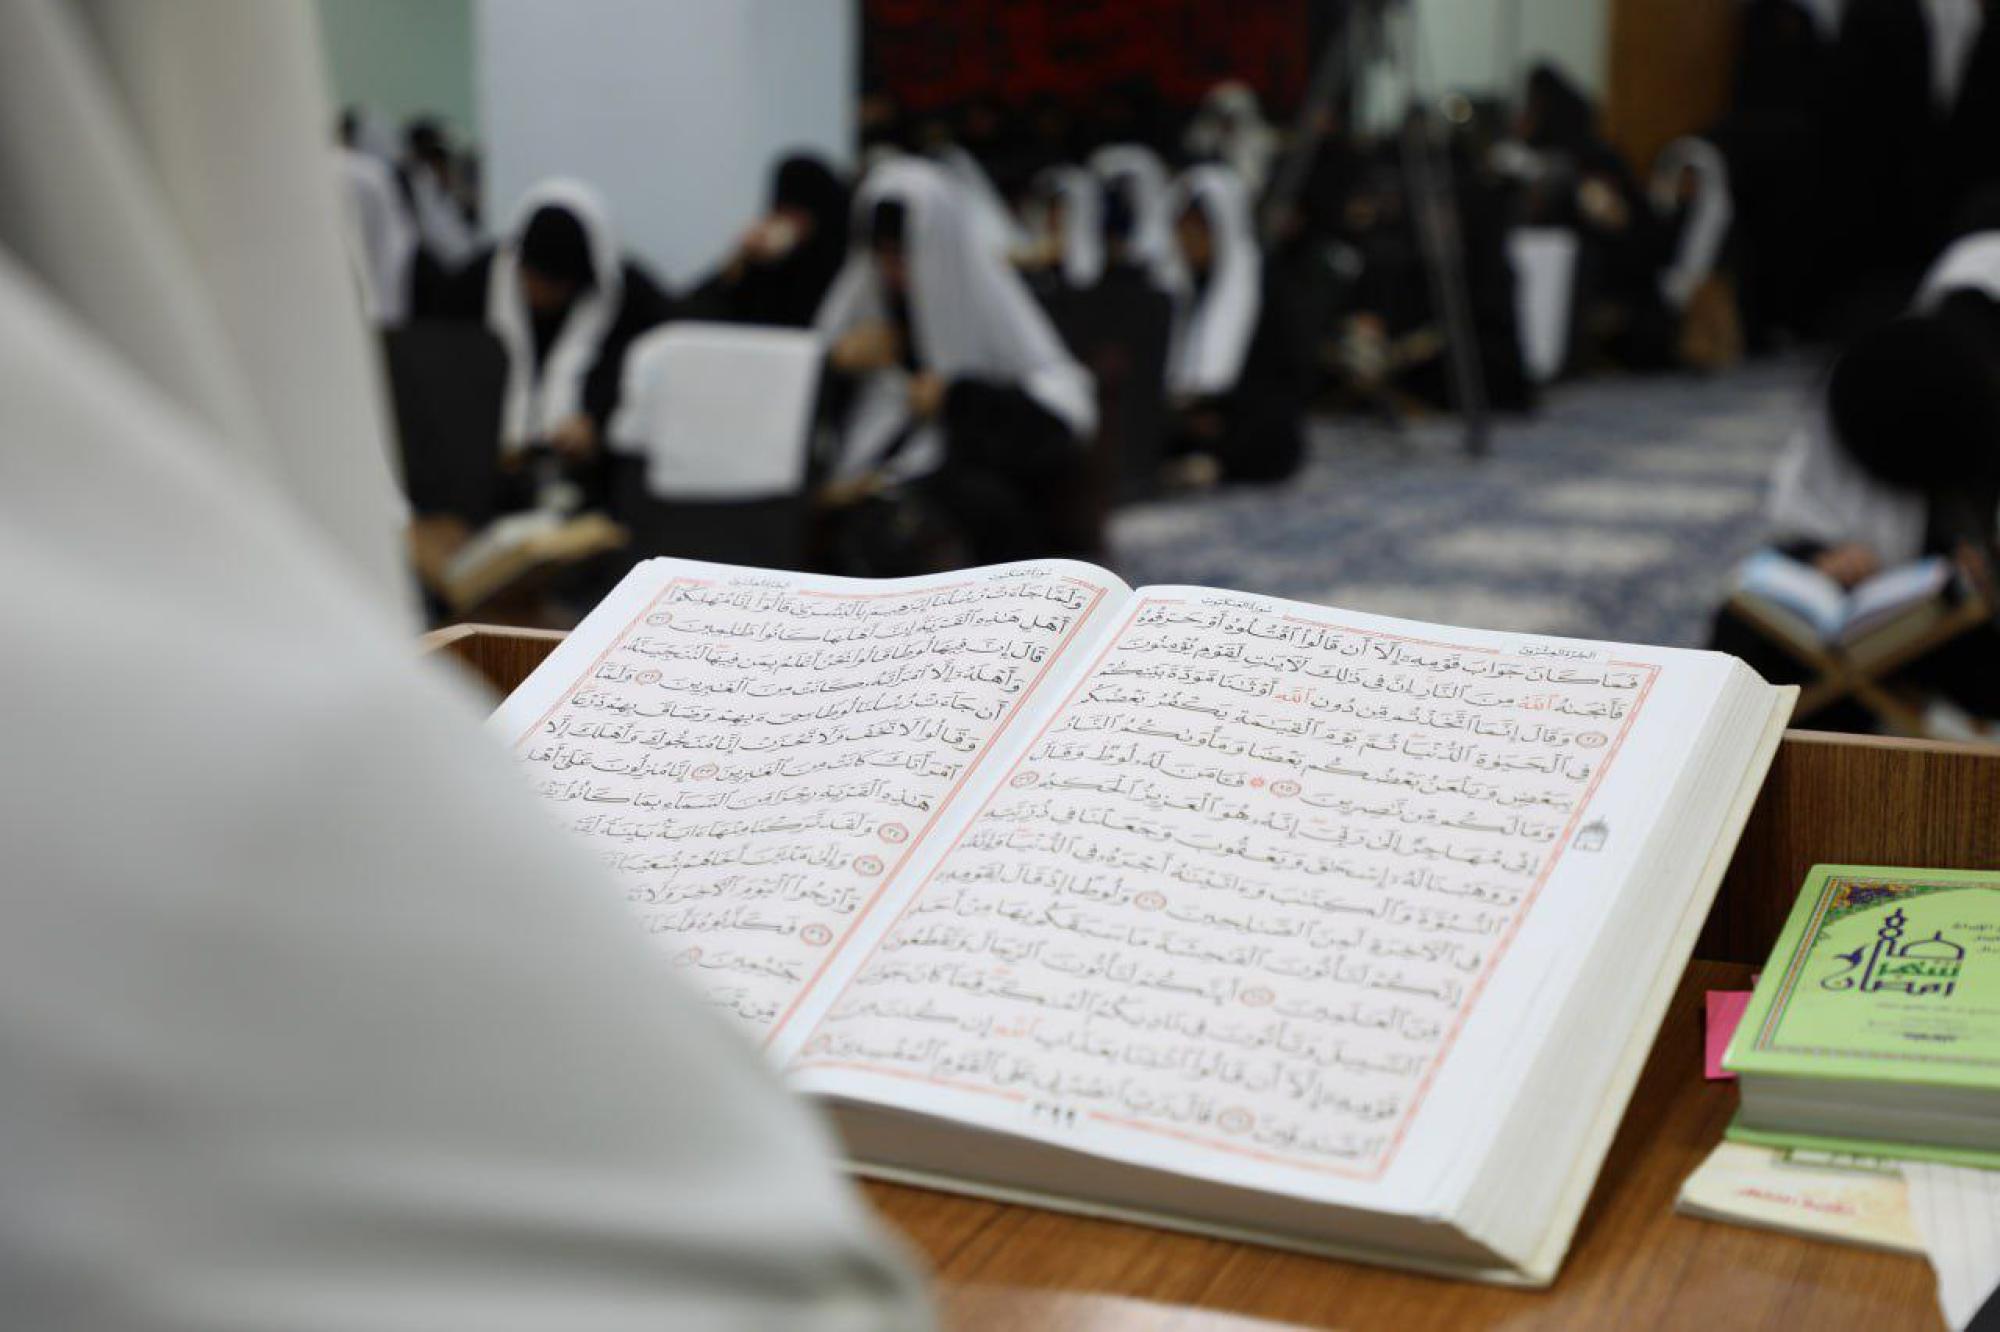 سورة العنكبوت
الجزء العشرون
فَمَا كَانَ جَوَابَ قَوْمِهِ إِلَّا أَن قَالُوا اقْتُلُوهُ أَوْ حَرِّقُوهُ
فَأَنجَاهُ اللَّهُ مِنَ النَّارِ إِنَّ فِي ذَلِكَ لَآيَاتٍ لِّقَوْمٍ يُؤْمِنُونَ
٢٤ وَقَالَ إِنَّمَا اتَّخَذْتُم مِّن دُونِ اللَّهِ أَوْثَانًا مَّوَدَّةَ بَيْنِكُمْ
فِي الْحَيَاةِ الدُّنْيَا ثُمَّ يَوْمَ الْقِيَامَةِ يَكْفُرُ بَعْضُكُم
بِبَعْضٍ وَيَلْعَنُ بَعْضُكُم بَعْضًا وَمَأْوَاكُمُ النَّارُ
وَمَا لَكُم مِّن نَّاصِرِينَ ٢٥ فَآمَنَ لَهُ لُوطٌ وَقَالَ
إِنِّي مُهَاجِرٌ إِلَى رَبِّي إِنَّهُ هُوَ الْعَزِيزُ الْحَكِيمُ ٢٦
وَوَهَبْنَا لَهُ إِسْحَاقَ وَيَعْقُوبَ وَجَعَلْنَا فِي ذُرِّيَّتِهِ
النُّبُوَّةَ وَالْكِتَابَ وَآتَيْنَاهُ أَجْرَهُ فِي الدُّنْيَا وَإِنَّهُ
فِي الْآخِرَةِ لَمِنَ الصَّالِحِينَ ٢٧ وَلُوطًا إِذْ قَالَ لِقَوْمِهِ
إِنَّكُمْ لَتَأْتُونَ الْفَاحِشَةَ مَا سَبَقَكُم بِهَا مِنْ أَحَدٍ
مِّنَ الْعَالَمِينَ ٢٨ أَئِنَّكُمْ لَتَأْتُونَ الرِّجَالَ وَتَقْطَعُونَ
السَّبِيلَ وَتَأْتُونَ فِي نَادِيكُمُ الْمُنكَرَ فَمَا كَانَ جَوَابَ
قَوْمِهِ إِلَّا أَن قَالُوا ائْتِنَا بِعَذَابِ اللَّهِ إِن كُنتَ مِنَ
الصَّادِقِينَ ٢٩ قَالَ رَبِّ انصُرْنِي عَلَى الْقَوْمِ الْمُفْسِدِينَ
٣٩٩
سورة العنكبوت
الجزء العشرون
وَلَمَّا جَاءَتْ رُسُلُنَا إِبْرَاهِيمَ بِالْبُشْرَى قَالُوا إِنَّا مُهْلِكُو
أَهْلِ هَذِهِ الْقَرْيَةِ إِنَّ أَهْلَهَا كَانُوا ظَالِمِينَ ٣١
قَالَ إِنَّ فِيهَا لُوطًا قَالُوا نَحْنُ أَعْلَمُ بِمَن فِيهَا لَنُنَجِّيَنَّهُ
وَأَهْلَهُ إِلَّا امْرَأَتَهُ كَانَتْ مِنَ الْغَابِرِينَ ٣٢ وَلَمَّا
أَن جَاءَتْ رُسُلُنَا لُوطًا سِيءَ بِهِمْ وَضَاقَ بِهِمْ ذَرْعًا
وَقَالُوا لَا تَخَفْ وَلَا تَحْزَنْ إِنَّا مُنَجُّوكَ وَأَهْلَكَ إِلَّا
امْرَأَتَكَ كَانَتْ مِنَ الْغَابِرِينَ ٣٣ إِنَّا مُنزِلُونَ عَلَى أَهْلِ
هَذِهِ الْقَرْيَةِ رِجْزًا مِّنَ السَّمَاءِ بِمَا كَانُوا
٣٤ وَلَقَد تَّرَكْنَا مِنْهَا آيَةً بَيِّنَةً
٣٥ وَإِلَى مَدْيَنَ أَخَاهُمْ شُعَيْبًا
وَارْجُوا الْيَوْمَ الْآخِرَ وَلَا
٣٦ فَكَذَّبُوهُ فَأَخَذَ
جَاثِمِينَ
مِّن
شهر
رمضان